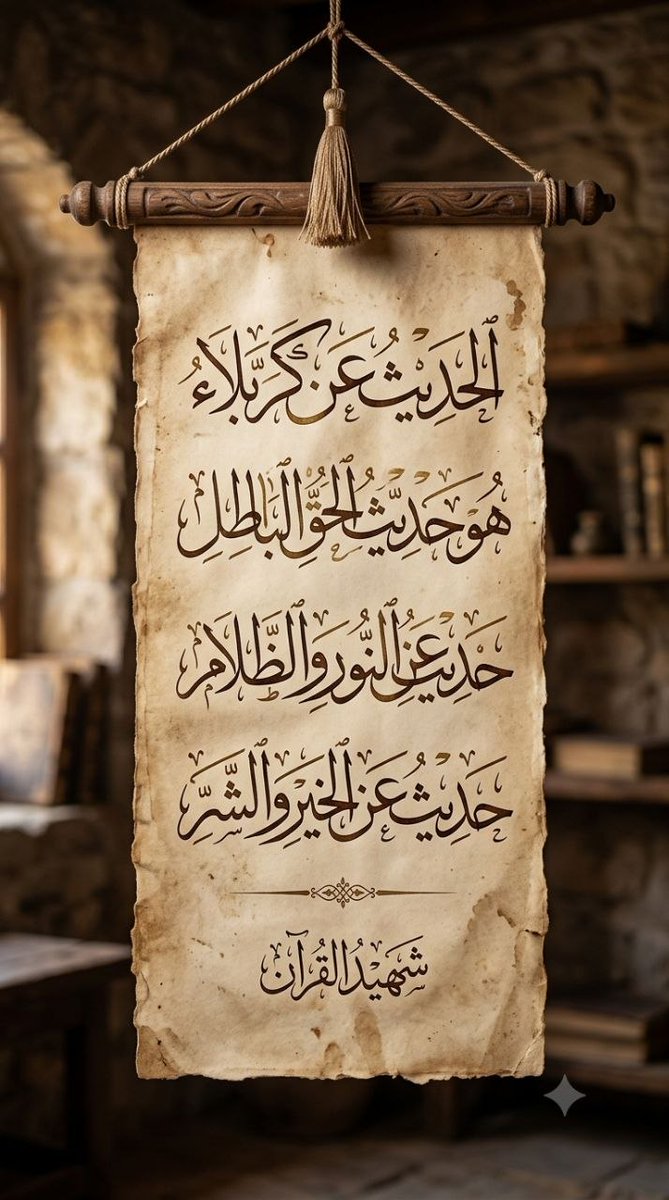 الحَدِيثُ عَن كَرْبَلَاءُ
هُوَ حَدِيثُ الحَقِّ البَاطِلِ
حَدِيثٌ عَنِ النُّورِ وَالظَّلَامِ
حَدِيثُ عَنِ الخَيْرِ وَالشَّرِّ
شَهِيدُ القُرْآن